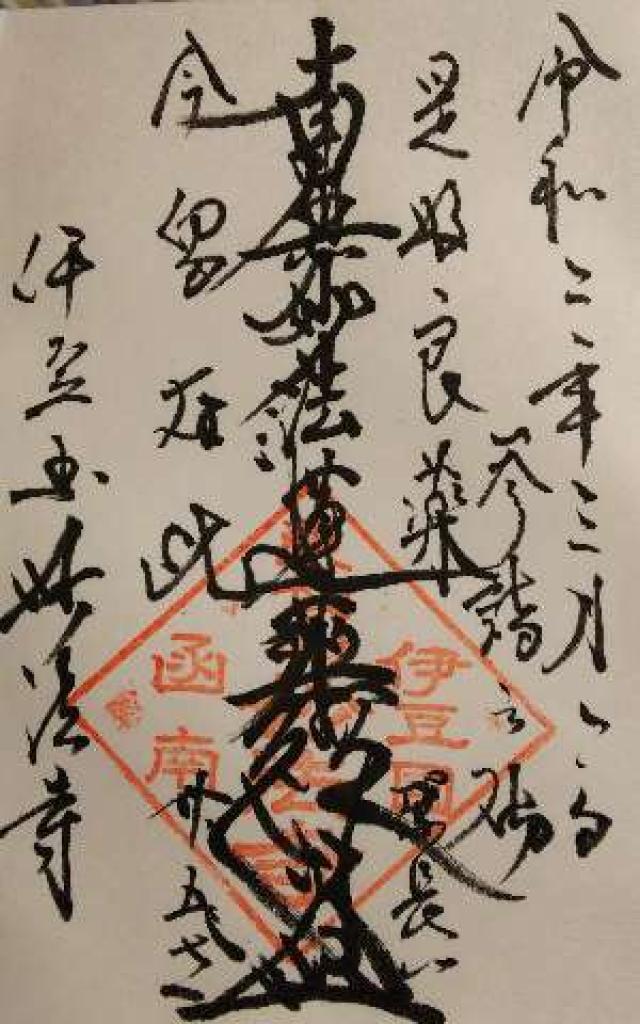 令和二年三月
参詣之砌
是好良薬
南無妙法蓮華経
今留在此
廿五世
伊豆国妙法寺
伊豆國
函南